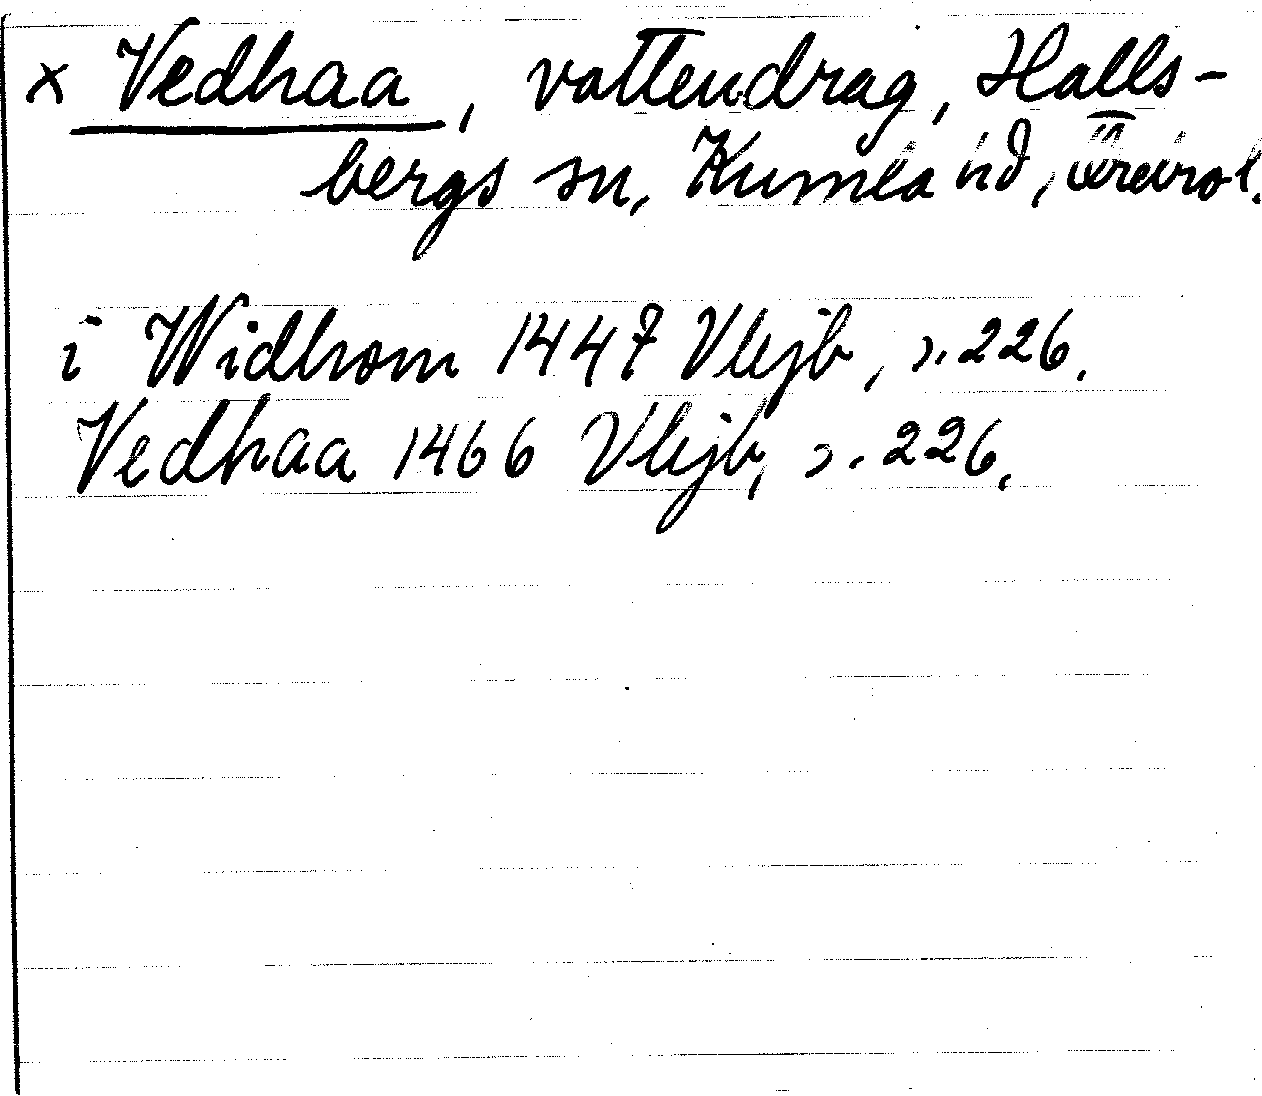 x Vedhaa, vattendrag, Halls-
bergs sn, Kumla hd,
i Widhom 1447 Vlejb, s. 226.
Vedhaa 1466 Vlejb, s. 226.